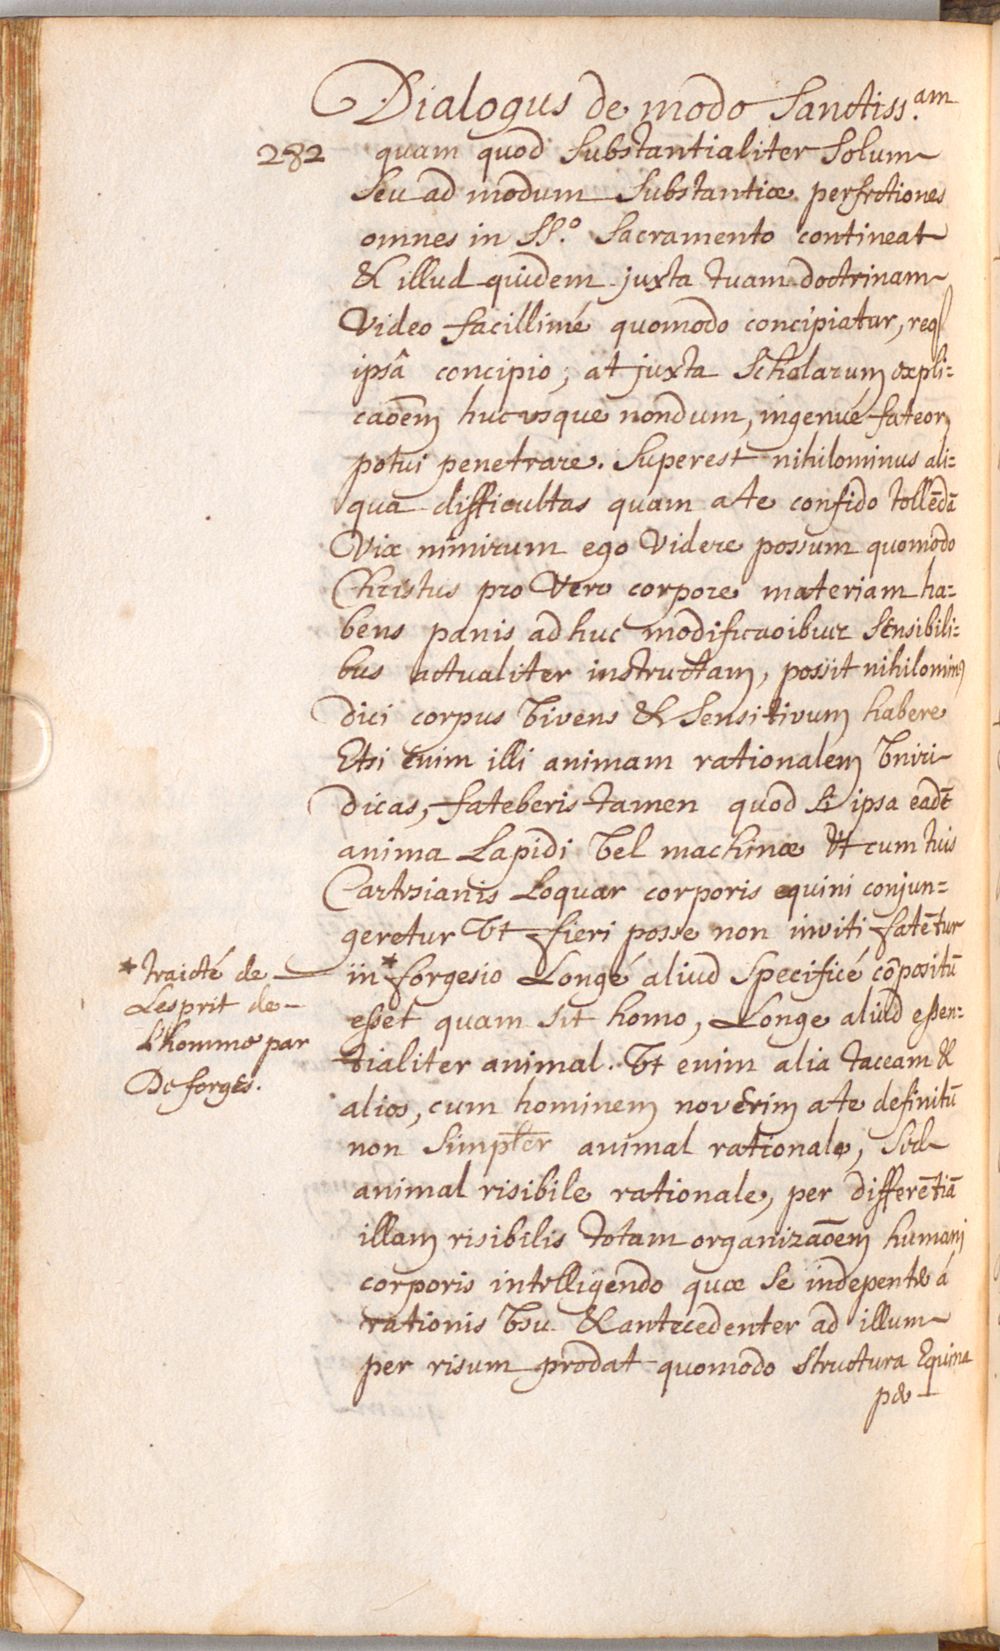 Dialogus de modo Sanctiss.am
282 quam quod Substantialiter Solum
Seu ad modum Substantiæ perfectiones
omnes in SS.º Sacramento contineat
& illud quidem juxta tuam doctrinam
Video facillimé quomodo concipiatur, req3
ipsâ concipio; at juxta Scholarum expli=
caõem huc usque nondum, ingenué fateor,
potui penetrare. Superest nihilominus ali=
qua difficultas quam a te confido tollēdā
Vix nimirum ego Videre possum quomodo
Christus pro Vero corpore materiam ha=
bens panis ad huc modificaoibus Sensibili=
bus actualiter instructam, possit nihilomin9
dici corpus Vivens & Sensitivum habere
Etsi enim illi animam rationalem Vniri
dicas, fateberis tamen quod Si ipsa eadē
anima Lapidi Vel machinæ Vt cum tuis
Cartesianis Loquar corporis equini conjun=
geretur Vt fieri posse non inviti fatētur
in * forgesio Longé aliud Specificé cōpositū
esset quam sit homo, Longe aliud essen=
tialiter animal. Vt enim alia taceam &
alios, cum hominem noverim a te definitū
non Simplr̄ animal rationale, Sed
animal risibile rationale, per differētiā
illam risibilis totam organizaõem humani
corporis intelligendo quæ Se indepente á
rationis Vsu & antecedenter ad illum
per risum prodat quomodo Structura Equina
pe
* traicté de
Lesprit de
L'homme par
De forges.